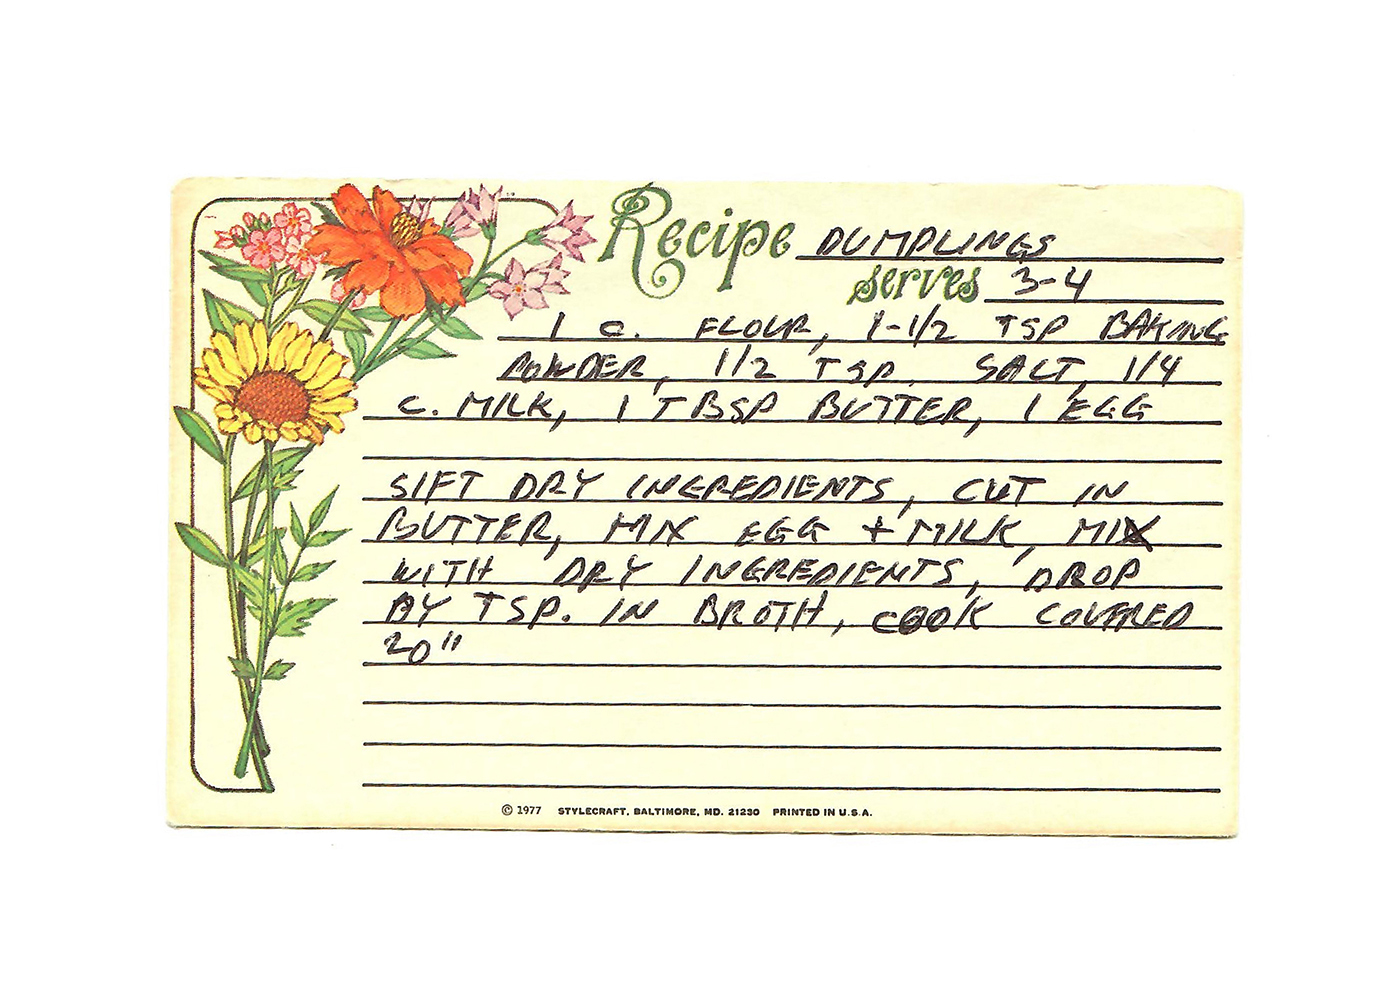 Recipe DUMPLINGS
serves 3-4
1 C. FLOUR, 1-1/2 TSP BAKING
POWDER, 1/2 TSP. SALT, 1/4
C. MILK, 1 TBSP BUTTER, 1 EGG
SIFT DRY INGREDIENTS, CUT IN
BUTTER, MIX EGG + MILK, MIX
WITH DRY INGREDIENTS, DROP
BY TSP. IN BROTH, COOK COVERED
20"
© 1977 STYLECRAFT, BALTIMORE, MD. 21230 PRINTED IN U.S.A.